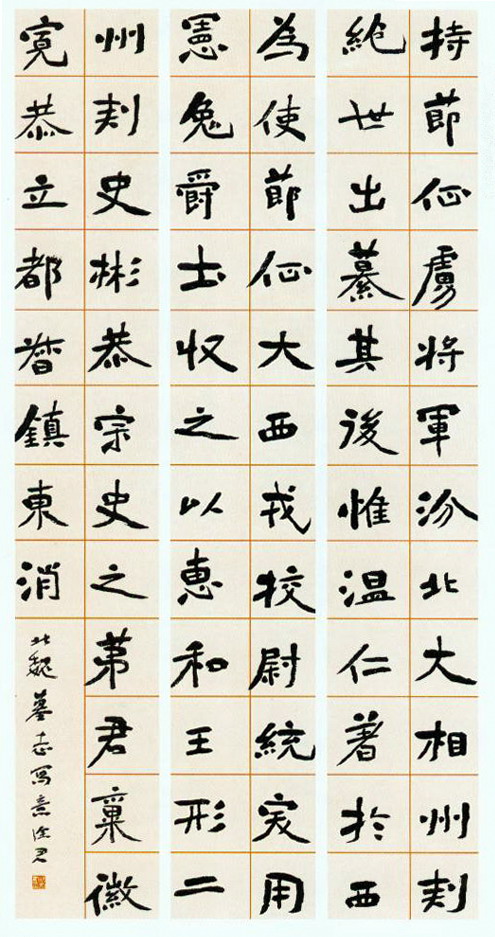 持節征虜将軍汾北大相州刾
世出慕其後惟温仁著於西
為使節征大西戎校尉統㝎用
憲兔爵士收之以恵和王形二
州刾史彬恭宗史之苐君稟徽
寛恭立都督鎮東消
北魏墓志写意